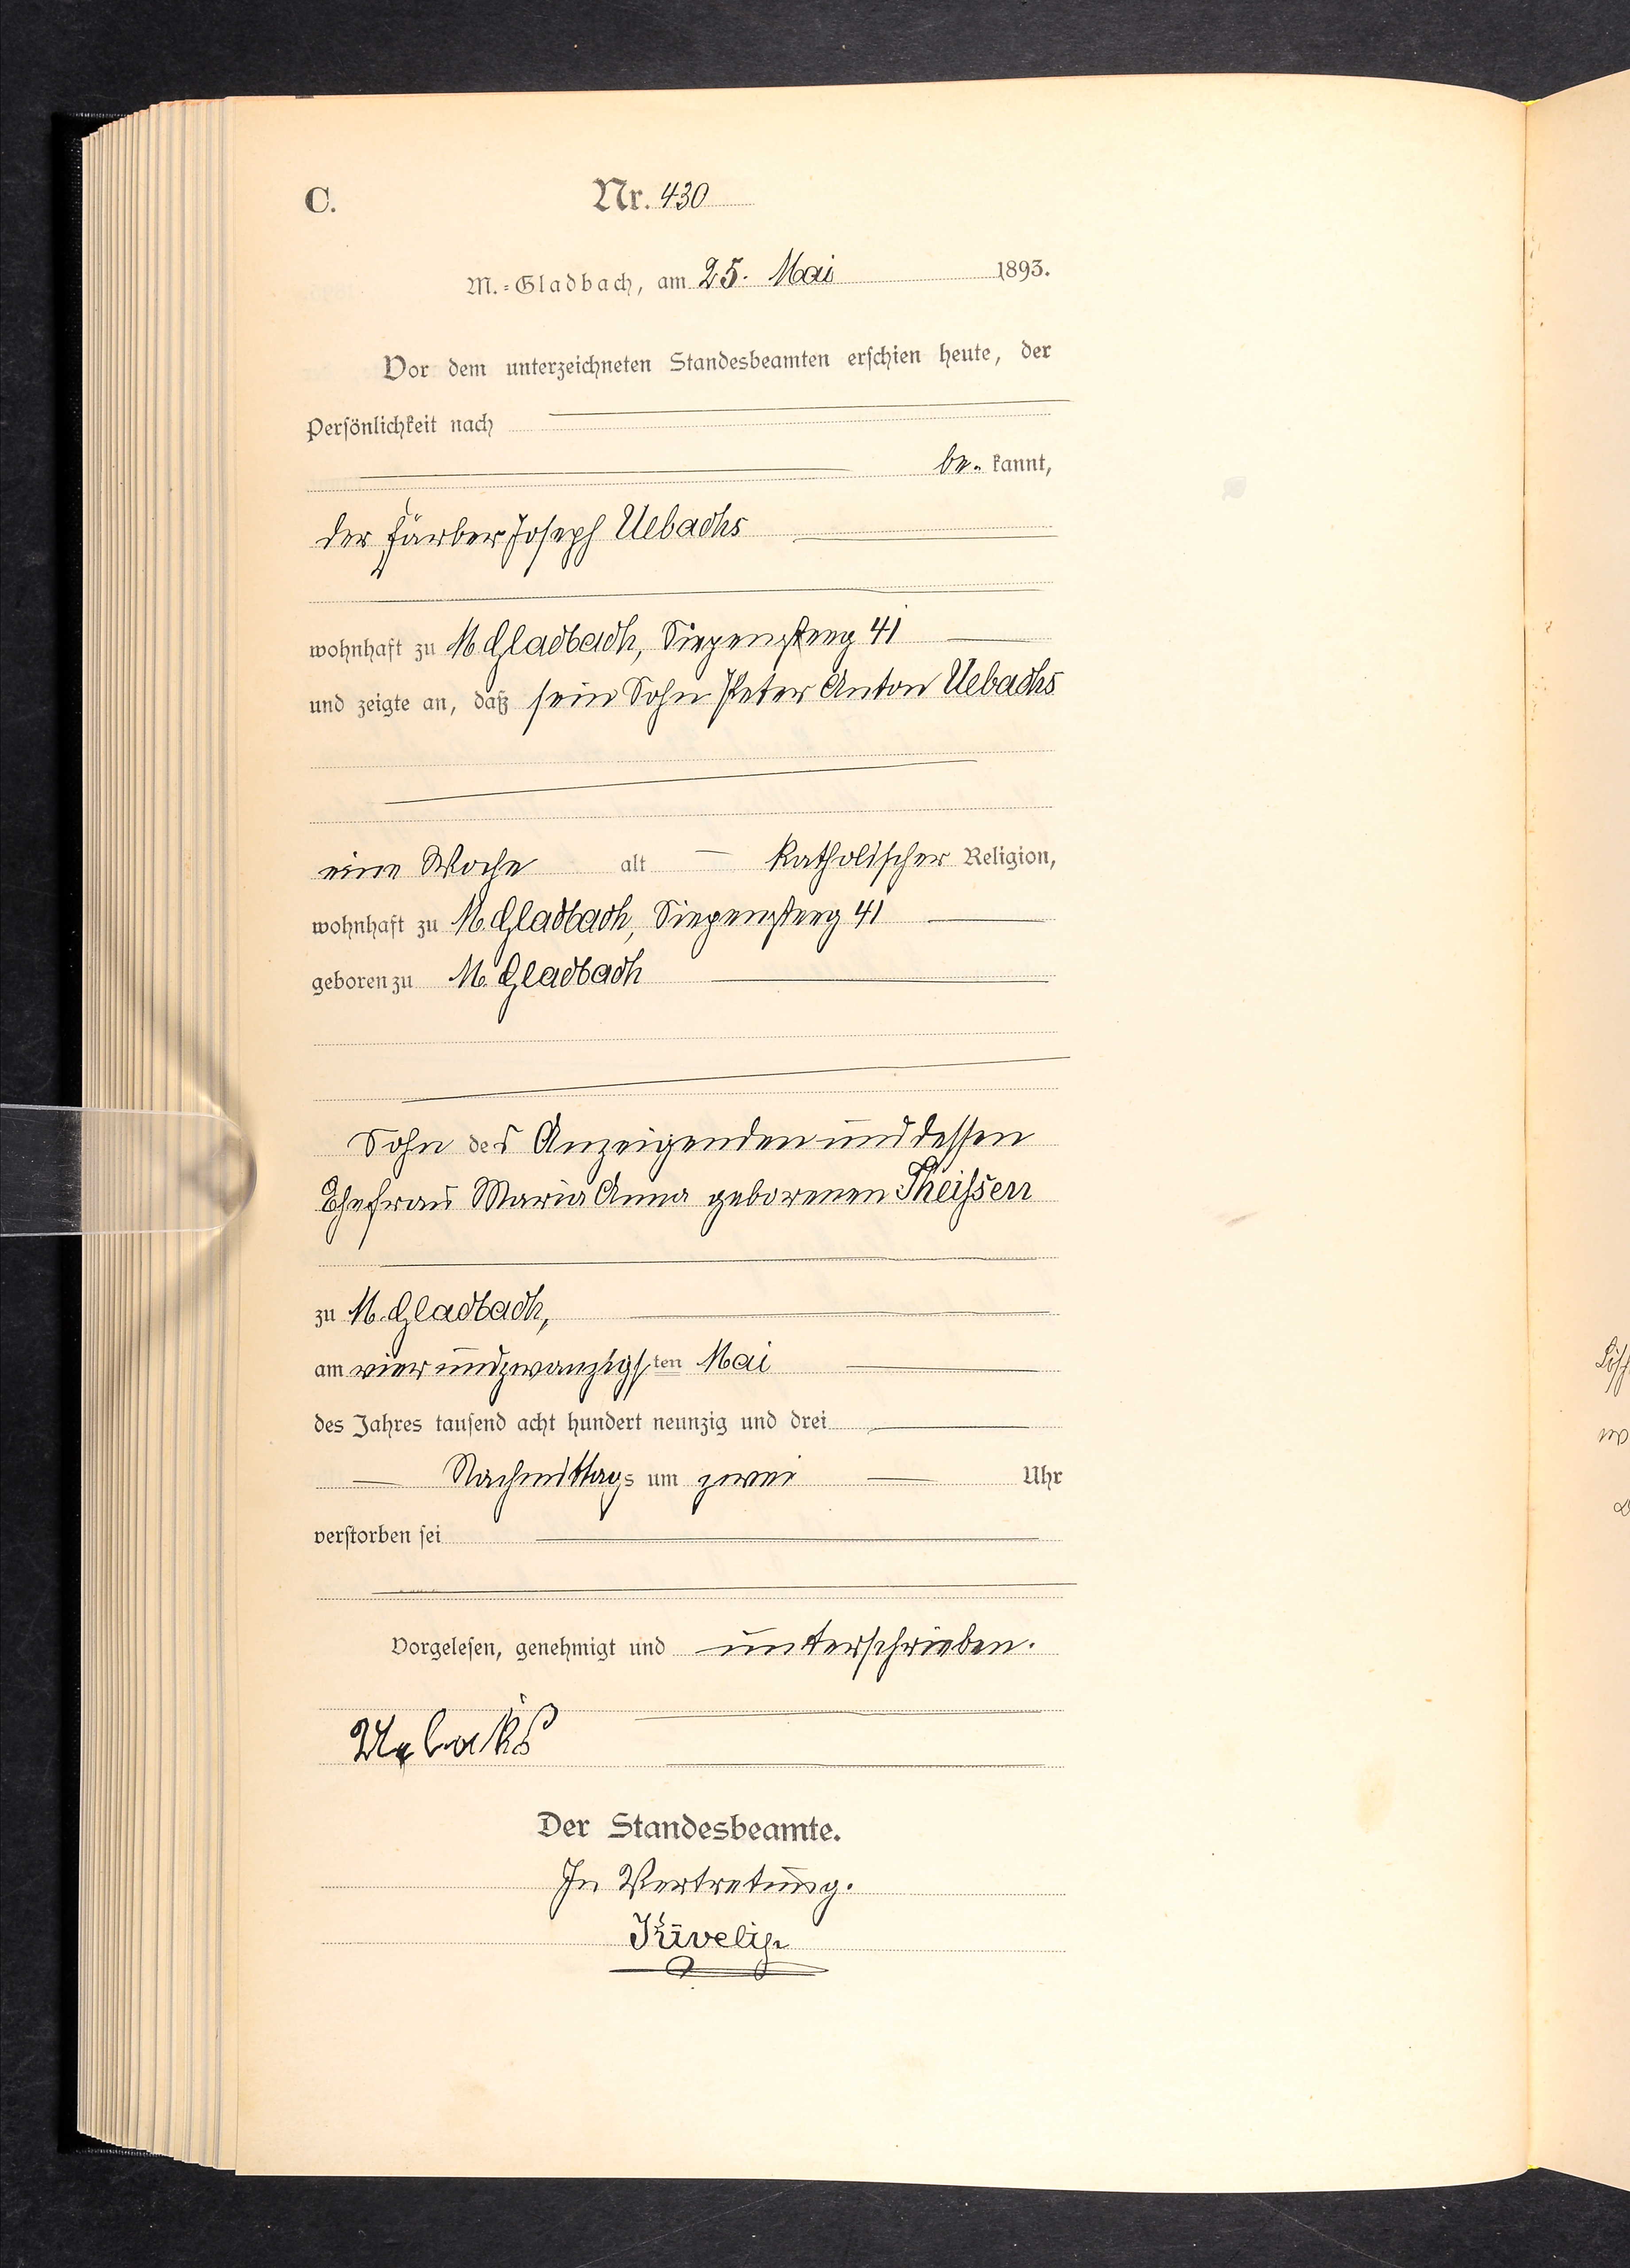 C. Nr. 430
M.=Gladbach, am 25. Mai 1893.
Vor dem unterzeichneten Standesbeamten erschien heute, der
Persönlichkeit nach
be- kannt,
der Färber Joseph Uebachs
wohnhaft zu M. Gladbach, 41
und zeigte an, daß sein Sohn Peter Anton Uebachs
eine Woche alt katholischer Religion,
wohnhaft zu M. Gladbach, 41
geboren zu M. Gladbach
Sohn des Anzeigenden und dessen
Ehefrau Maria Anna geborenen Theißen
zu M. Gladbach,
am vier und zwanzigsten Mai
des Jahres tausend acht hundert neunzig und drei
Nachmittags um zwei Uhr
verstorben sei
Vorgelesen, genehmigt und unterschrieben.
Uebachs
Der Standesbeamte.
In Vertretung.